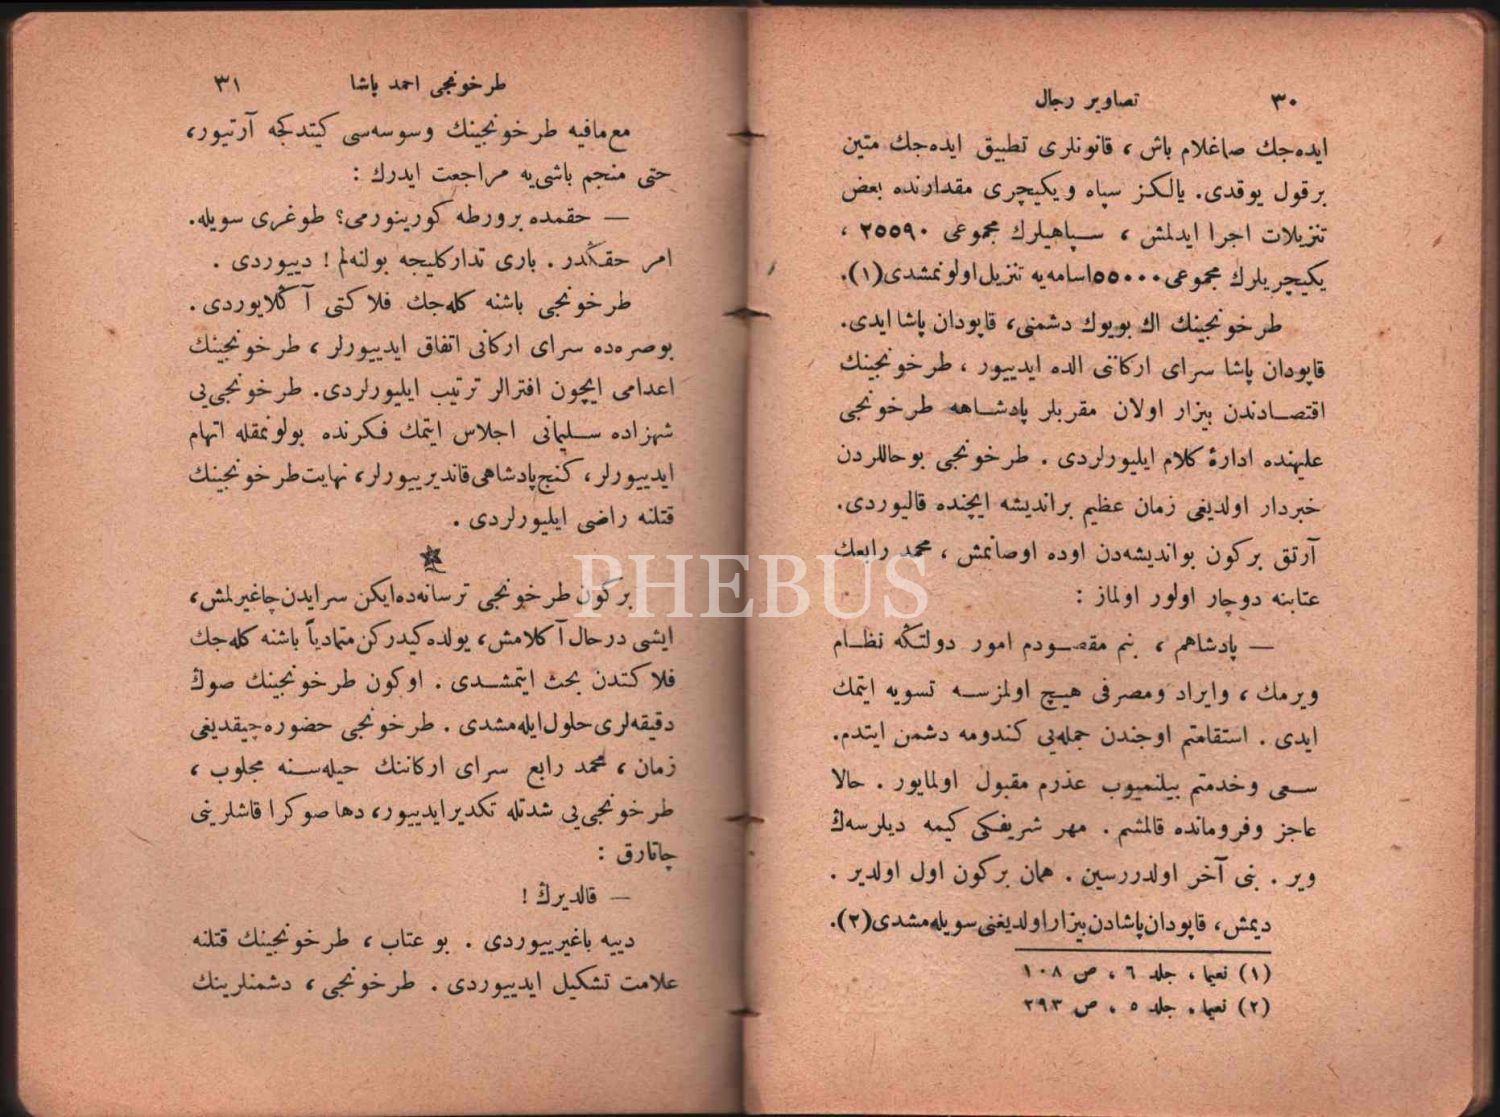 ٣٠ تصاویر رجال
ایده‌جك صاغلام باش ، قانونلری تطبیق ایده‌جك متین
بر قول یوقدی. یالكز سپاه و یكیچری مقدارنده بعض
تنزیلات اجرا ایدلمش ، سپاهیلرك مجموعی ٢٥٥٩٠ ،
یكیچریلرك مجموعی ٥٥٠٠٠ اسامه‌یه تنزیل اولونمشدی (١).
طرخونجینك اك بویوك دشمنی، قاپودان پاشا ایدی.
قاپودان پاشا سرای اركاننی الده ایدییور ، طرخونجینك
اقتصادندن بیزار اولان مقربلر پادشاهه طرخونجی
علیهنده ادارهٔ كلام ایلیورلردی . طرخونجی بوحاللردن
خبردار اولدیغی زمان عظیم براندیشه ایچنده قالیوردی.
آرتق بركون بواندیشه‌دن اوده اوصانمش ، محمد رابعك
عتابنه دوچار اولور اولماز :
— پادشاهم ، بنم مقصودم امور دولتكه نظام
ویرمك ، وایراد ومصرفی هیچ اولمزسه تسویه ایتمك
ایدی . استقامتم اوجندن جمله‌یی كندومه دشمن ایتدم.
سعی وخدمتم بیلنمیوب عذرم مقبول اولمایور . حالا
عاجز وفرومانده قالمشم . مهر شریفكی كیمه دیلرسه‌ڭ
ویر . بنی آخر اولدررسین . همان بركون اول اولدیر .
دیمش، قاپودان پاشادن بیزار اولدیغنی سویله‌مشدی (٢).
(١) نعیما ، جلد ٦ ، ص ١٠٨
(٢) نعیما ، جلد ٥ ، ص ٢٩٣
طرخونجی احمد پاشا ٣١
مع‌مافیه طرخونجینك وسوسه‌سی كیتدكجه آرتیور،
حتی منجم باشی‌یه مراجعت ایدرك :
— حقمده برورطه كورینورمی؟ طوغری سویله.
امر حقكدر . باری تداركلیجه بولنه‌لم ! دییوردی .
طرخونجی باشنه كله‌جك فلاكتی آڭلایوردی .
بوصره‌ده سرای اركانی اتفاق ایدییورلر ، طرخونجینك
اعدامی ایچون افترالر ترتیب ایلیورلردی. طرخونجی‌یی
شهزاده سلیمانی اجلاس ایتمك فكرنده بولونمقله اتهام
ایدییورلر، كنج پادشاهی قاندیرییورلر، نهایت طرخونجینك
قتلنه راضی ایلیورلردی .
بركون طرخونجی ترسانه‌ده ایكن سرایدن چاغیرلمش،
ایشی درحال آكلامش، یولده كیدركن متمادیاً باشنه كله‌جك
فلاكتدن بحث ایتمشدی . اوكون طرخونجینك صوڭ
دقیقه‌لری حلول ایله‌مشدی . طرخونجی حضوره چیقدیغی
زمان ، محمد رابع سرای اركاننك حیله‌سنه مجلوب ،
طرخونجی‌یی شدتله تكدیر ایدییور، دها صوكرا قاشلرینی
چاتارق :
— قالدیرڭ !
دییه باغیرییوردی . بو عتاب ، طرخونجینك قتلنه
علامت تشكیل ایدییوردی . طرخونجی ، دشمنلرینك
PHEBUS